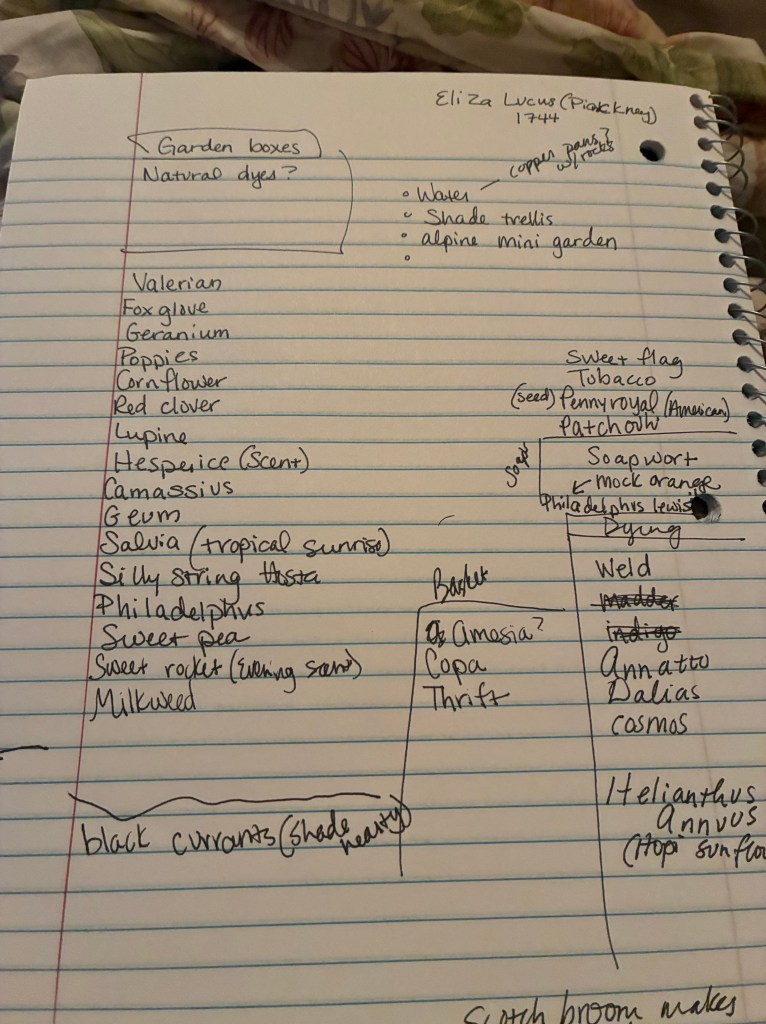 Eliza Lucus (Pinckney)
1744
Garden boxes
Natural dyes?
copper pans?
w/rocks
• Water
• Shade trellis
• alpine mini garden
•
Valerian
Foxglove
Geranium
Poppies
Cornflower
Red clover
Lupine
Hesperice (Scent)
Camassius
Geum
Salvia (tropical sunrise)
Silly String Hosta
Philadelphus
Sweet pea
Sweet rocket (Evening scent)
Milkweed
black currants (shade hearty)
Basket
Amesia?
Copa
Thrift
Sweet flag
Tobacco
(seed) Pennyroyal (American)
Patchouli
Soap
Soapwort
mock orange
Philadelphus lewis
Dying
Weld
madder
indigo
Annatto
Dalias
cosmos
Helianthus
Annuus
(Hopi sunflo
Scotch broom makes